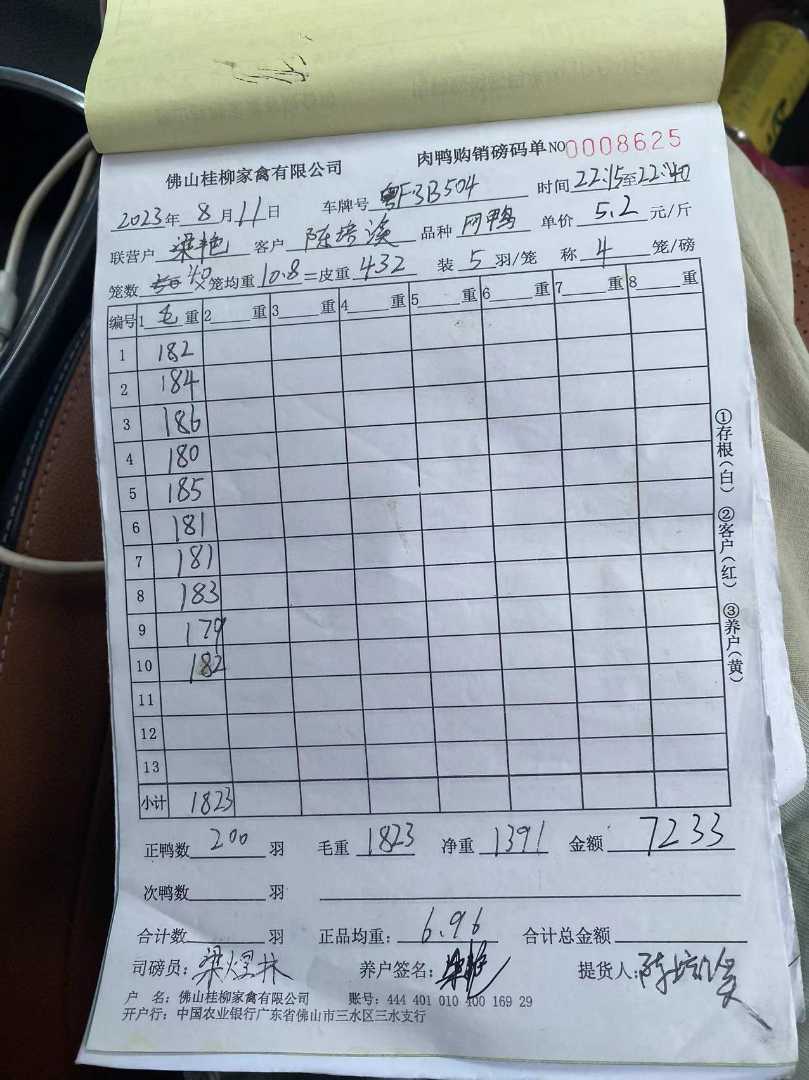 佛山桂柳家禽有限公司 肉鸭购销磅码单 NO 0008625
2023年 8月11日 车牌号 粤F3B504 时间 22:15至22:40
联营户 梁艳 客户 陈培 品种 网鸭 单价 5.2 元/斤
笼数 40 ×笼均重 10.8 =皮重 432 装 5 羽/笼 称 4 笼/磅
编号 1 毛 重 2 重 3 重 4 重 5 重 6 重 7 重 8 重
1 182
2 184
3 186
4 180
5 185
6 181
7 181
8 183
9 179
10 182
11
12
13
小计 1823
①存根(白) ②客户(红) ③养户(黄)
正鸭数 200 羽 毛重 1823 净重 1391 金额 7233
次鸭数 羽
合计数 羽 正品均重: 6.96 合计总金额
司磅员: 梁煜林 养户签名: 梁艳 提货人: 陈培
户 名: 佛山桂柳家禽有限公司 账号: 444 401 010 400 169 29
开户行: 中国农业银行广东省佛山市三水区三水支行